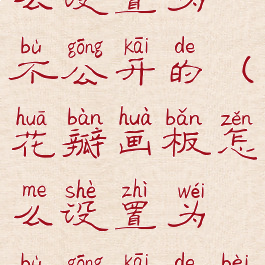 么设置为
bù gōng kāi de
不公开的（
huā bàn huà bǎn zěn
花瓣画板怎
me shè zhì wéi
么设置为
bù gōng kāi de bèi